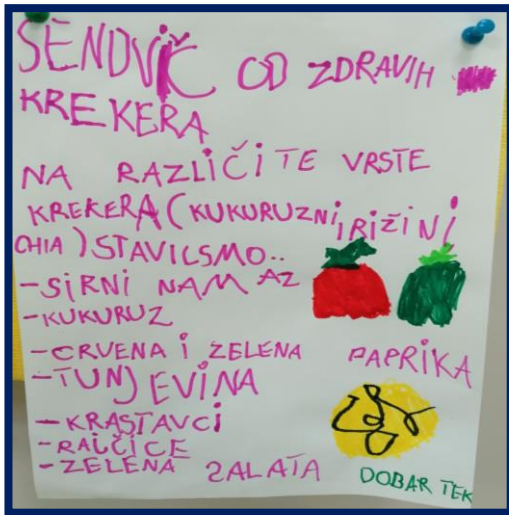 SENDVIČ OD ZDRAVIH
KREKERA
NA RAZLIČITE VRSTE
KREKERA (KUKURUZNI, RIŽINI
CHIA) STAVILSMO..
-SIRNI NAMAZ
-KUKURUZ
-CRVENA I ZELENA PAPRIKA
-TUNJEVINA
-KRASTAVCI
-RAJČICE
-ZELENA SALATA
DOBAR TEK